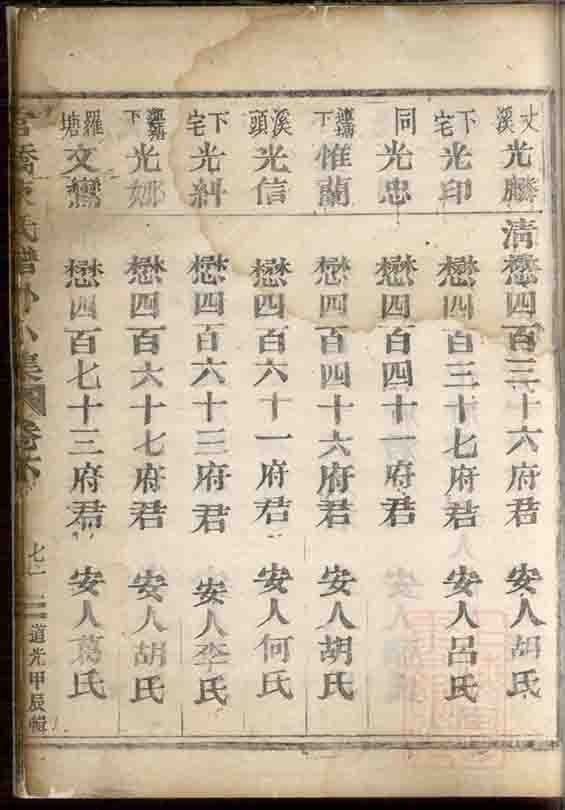 丈溪 光麟 清 懋四百三十六府君 安人胡氏
下宅 光印 懋四百三十七府君 安人呂氏
同 光忠 懋四百四十一府君 安人氏
下 惟蘭 懋四百四十六府君 安人胡氏
溪頭 光信 懋四百六十一府君 安人何氏
下宅 光糾 懋四百六十三府君 安人李氏
下 光娜 懋四百六十七府君 安人胡氏
羅塘 文鸞 懋四百七十三府君 安人葛氏
氏譜外小集 卷 七一 道光甲辰輯